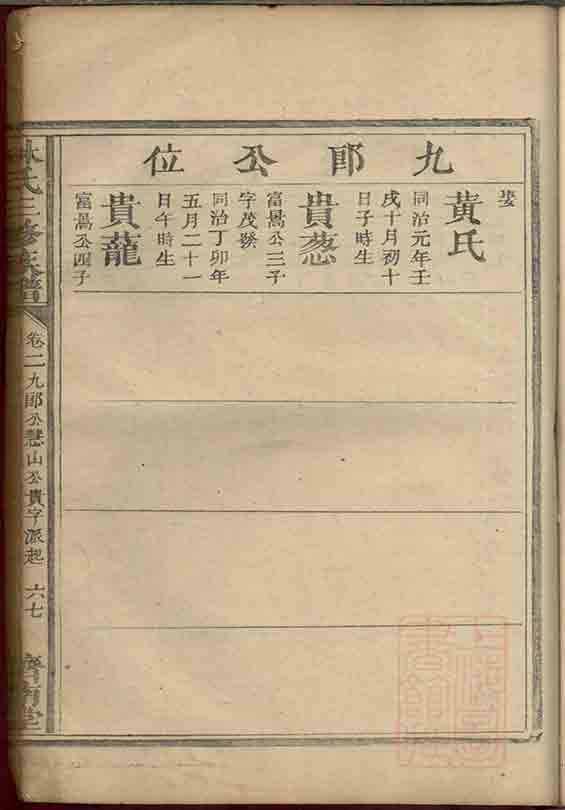 九郎公位
娶
黃氏
同治元年壬
戌十月初十
日子時生
貴葱
富暠公三子
字茂
同治丁卯年
五月二十一
日午時生
貴蘢
富暠公四子
林氏三修族譜
卷二九郎公慧山公貴字派起
六七
濟南堂